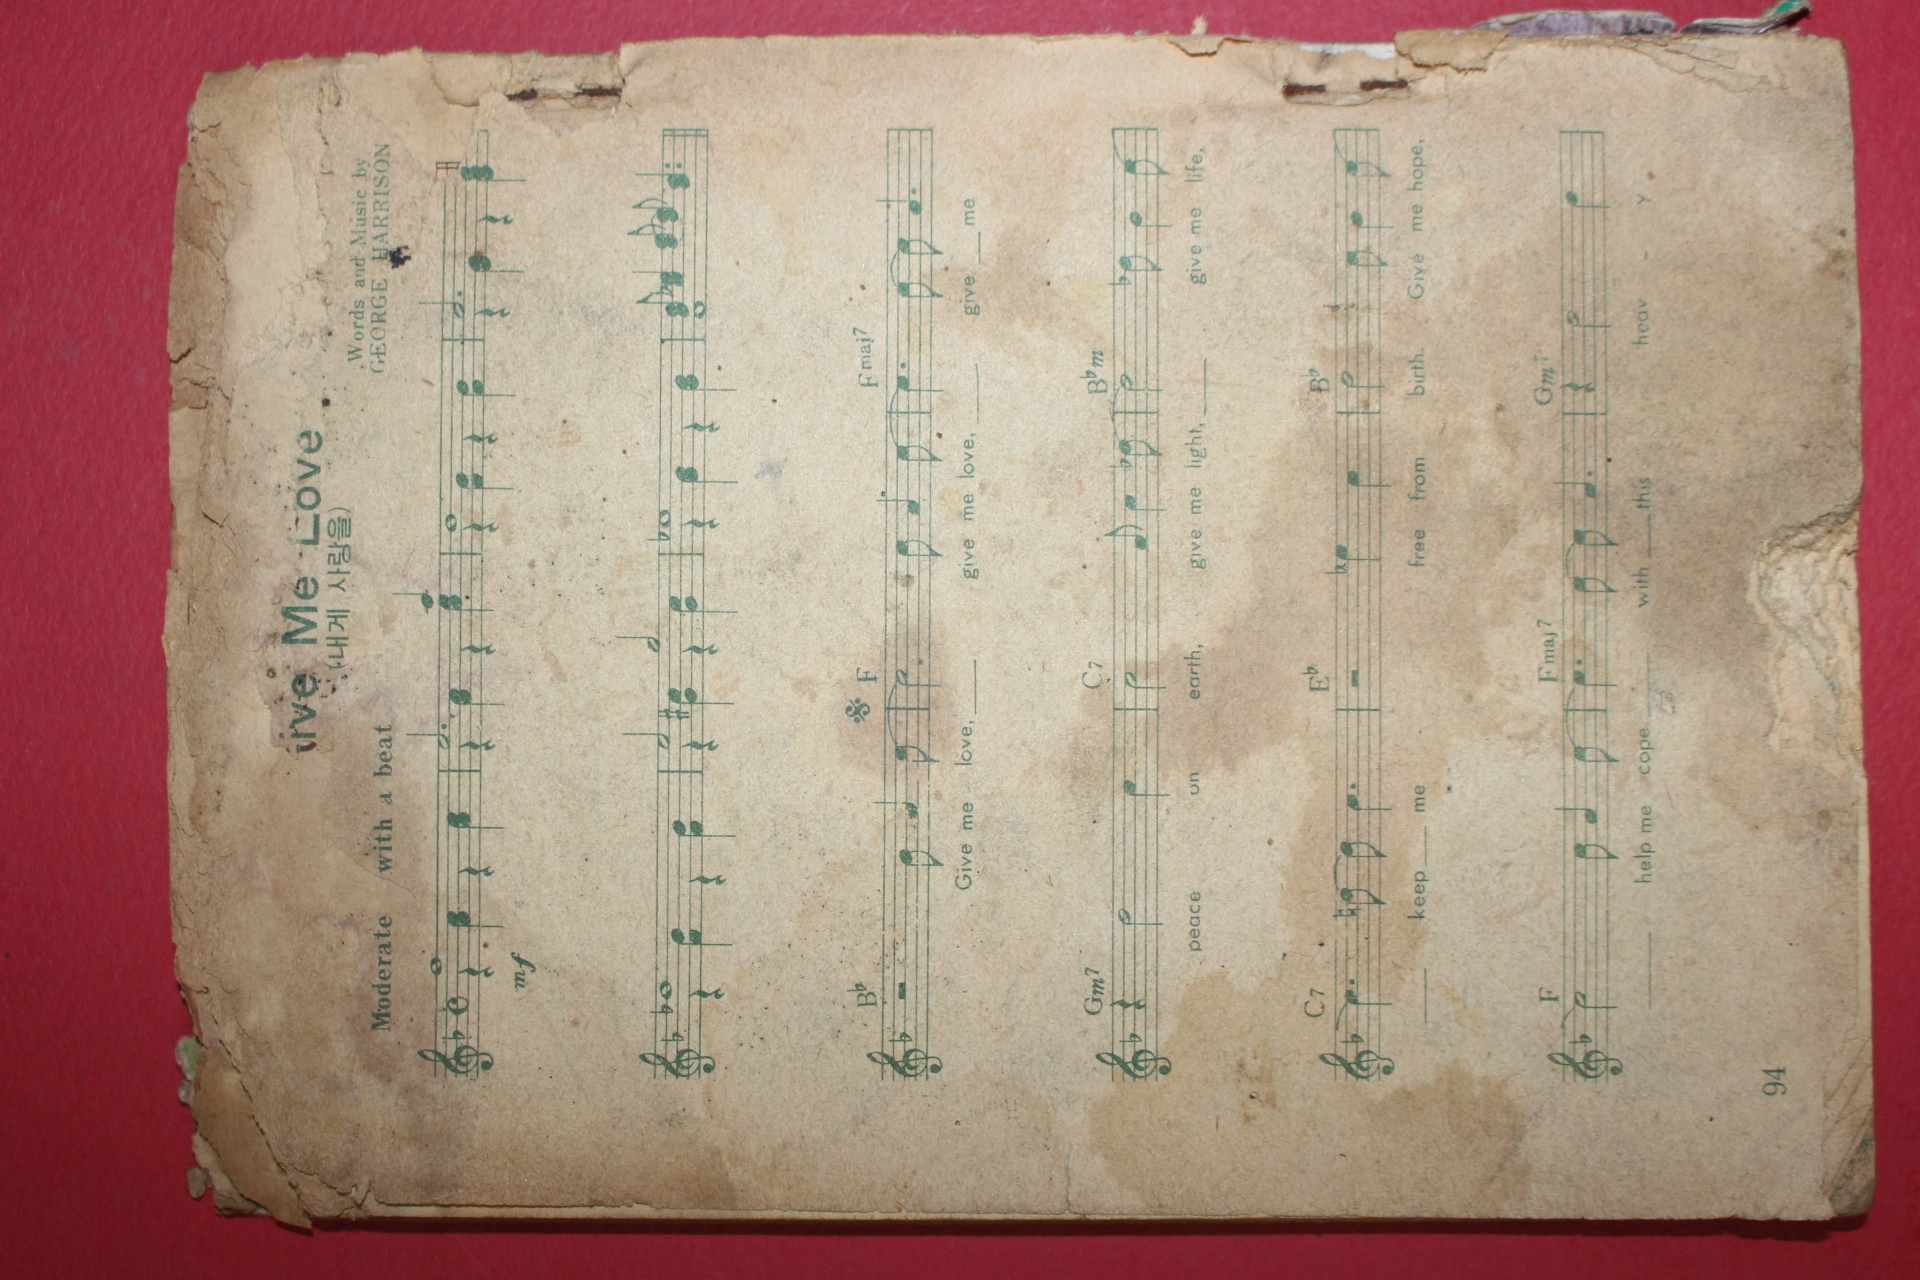 ive Me Love
(내게 사랑을)
Words and Music by
GEORGE HARRISON
Moderate with a beat
B♭ F Fmaj7
Give me love, give me love, give me
Gm7 C7 B♭m
peace on earth, give me light, give me life,
C7 E♭ B♭
keep me free from birth. Give me hope,
F Fmaj7 Gm7
help me cope with this heav - y
94